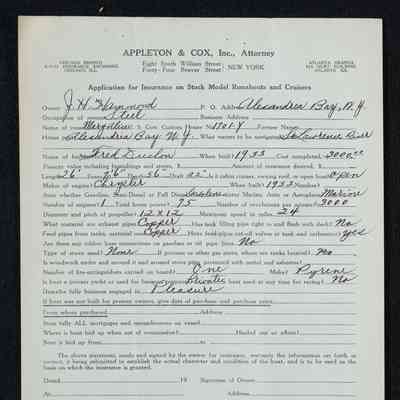 APPLETON & COX, Inc., Attorney
CHICAGO BRANCH
INSURANCE EXCHANGE
CHICAGO, ILL.
Eight South William Street
Forty-Four Beaver Street
NEW YORK
ATLANTA BRANCH
ATLANTA, GA.
Application for Insurance on Stock Model Runabouts and Cruisers
Owner J. H. Hammond P. O. Address Alexandria Bay, N.Y.
Occupation of owner Steel Business Address
Name of vessel U. S. Gov. Custom House No. Former Names
Home Alexandria Bay N.Y. What waters to be navigated St Lawrence River
Name of Fred When built? 1933 Cost completed, 3000.00
Present value including furnishings and stores, $ Amount of insurance desired, $
Length 26' Draft 22" Is it cabin cruiser, awning roof, or open boat? open
Maker of engine? Chrysler When built? 1933 Number?
Gasoline Marine
Number of engines? 1 Total horse power? 75 Number of revolutions per minute? 3000
Diameter and pitch of propeller? 12 X 12 Maximum speed in miles 24
What material are exhaust pipes Copper Has tank filling pipe tight to and flush with deck? No
Feed pipes from tanks, material? Copper Have pipes cut-off valves at tank and carburetor? yes
Are there any rubber hose connections on gasoline or oil pipes No
Type of stove used? None If propane or other gas stove, where are tanks located? No
Is woodwork under and around it and around stove pipe protected with metal and asbestos?
Number of fire-extinguishers carried on board? One Make? Pyrene
Is boat a private yacht or used for business? Private boat used at any time for racing? No
Describe fully business engaged in Pleasure
If boat was not built for present owner, give date of purchase and purchase price
From whom purchased Address
State fully ALL mortgages and encumbrances on vessel
Where is boat laid up when out of commission? Hauled out or afloat?
Now is laid up from at
The above statement, made and signed by the owner for insurance, warranty the information set forth as correct, it being understood to establish the actual character and condition of the boat, and is to be used as the basis on which the insurance is granted.
Dated 19 Signature of Owner
At Address